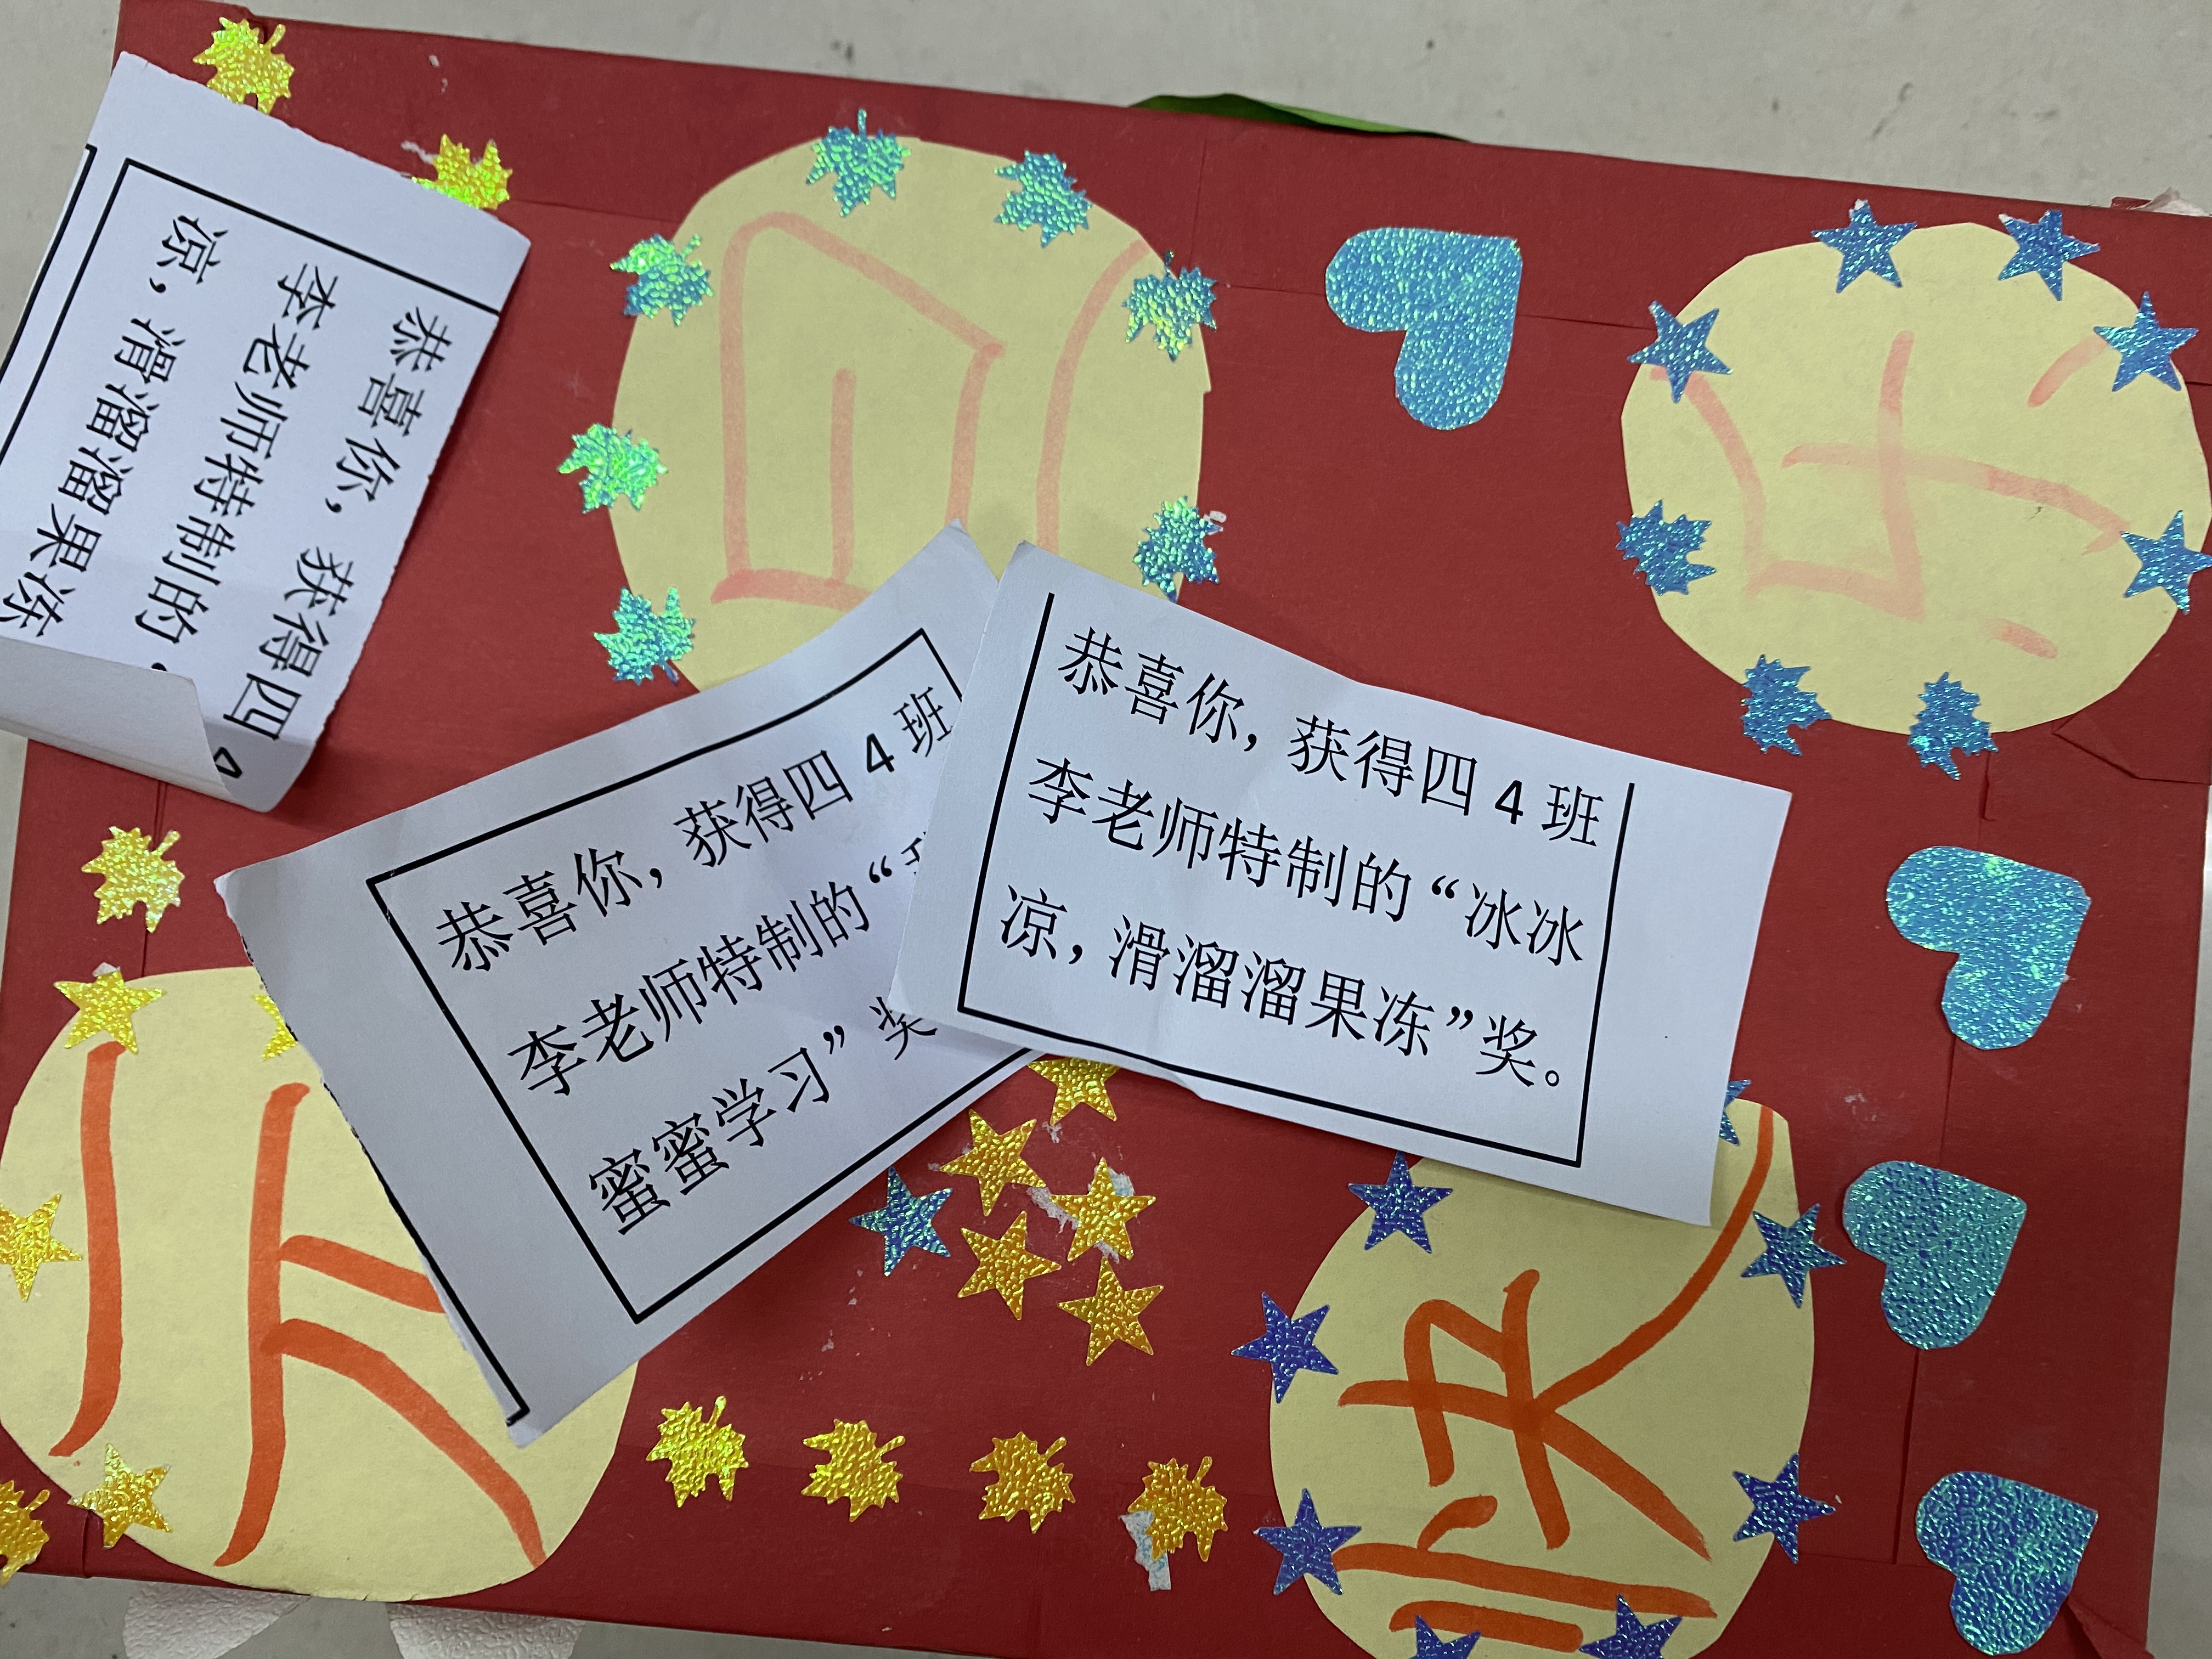 恭喜你，获得四
李老师特制的
凉，滑溜溜果冻
恭喜你，获得四 4 班
李老师特制的“
蜜蜜学习”奖
恭喜你，获得四 4 班
李老师特制的“冰冰
凉，滑溜溜果冻”奖。
快
乐